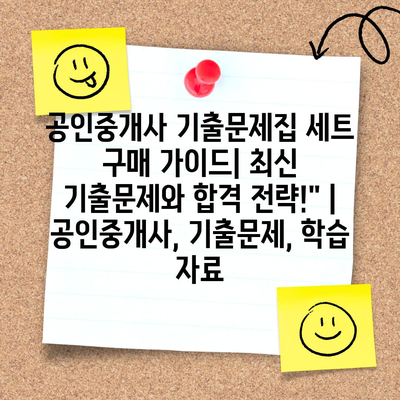 공인중개사 기출문제집 세트
구매 가이드| 최신
기출문제와 합격 전략!" |
공인중개사, 기출문제, 학습
자료